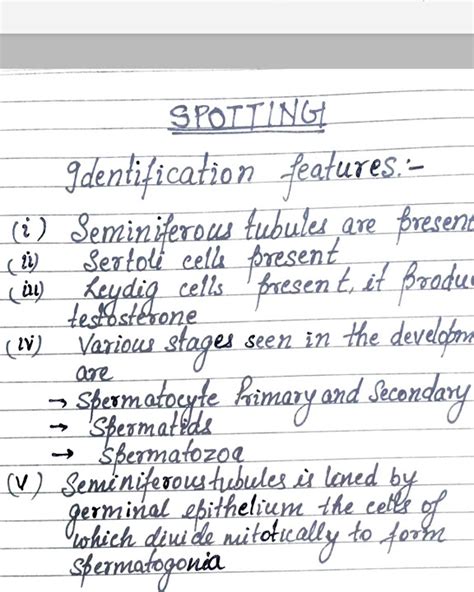 SPOTTING
Identification features:-
(i) Seminiferous tubules are present
(ii) Sertoli cells present
(iii) Leydig cells present, it produ
testosterone
(iv) Various stages seen in the developm
are
→ Spermatocyte Primary and Secondary
→ Spermatids
→ Spermatozoa
(v) Seminiferous tubules is lined by
germinal epithelium the cells of
which divide mitotically to form
spermatogonia